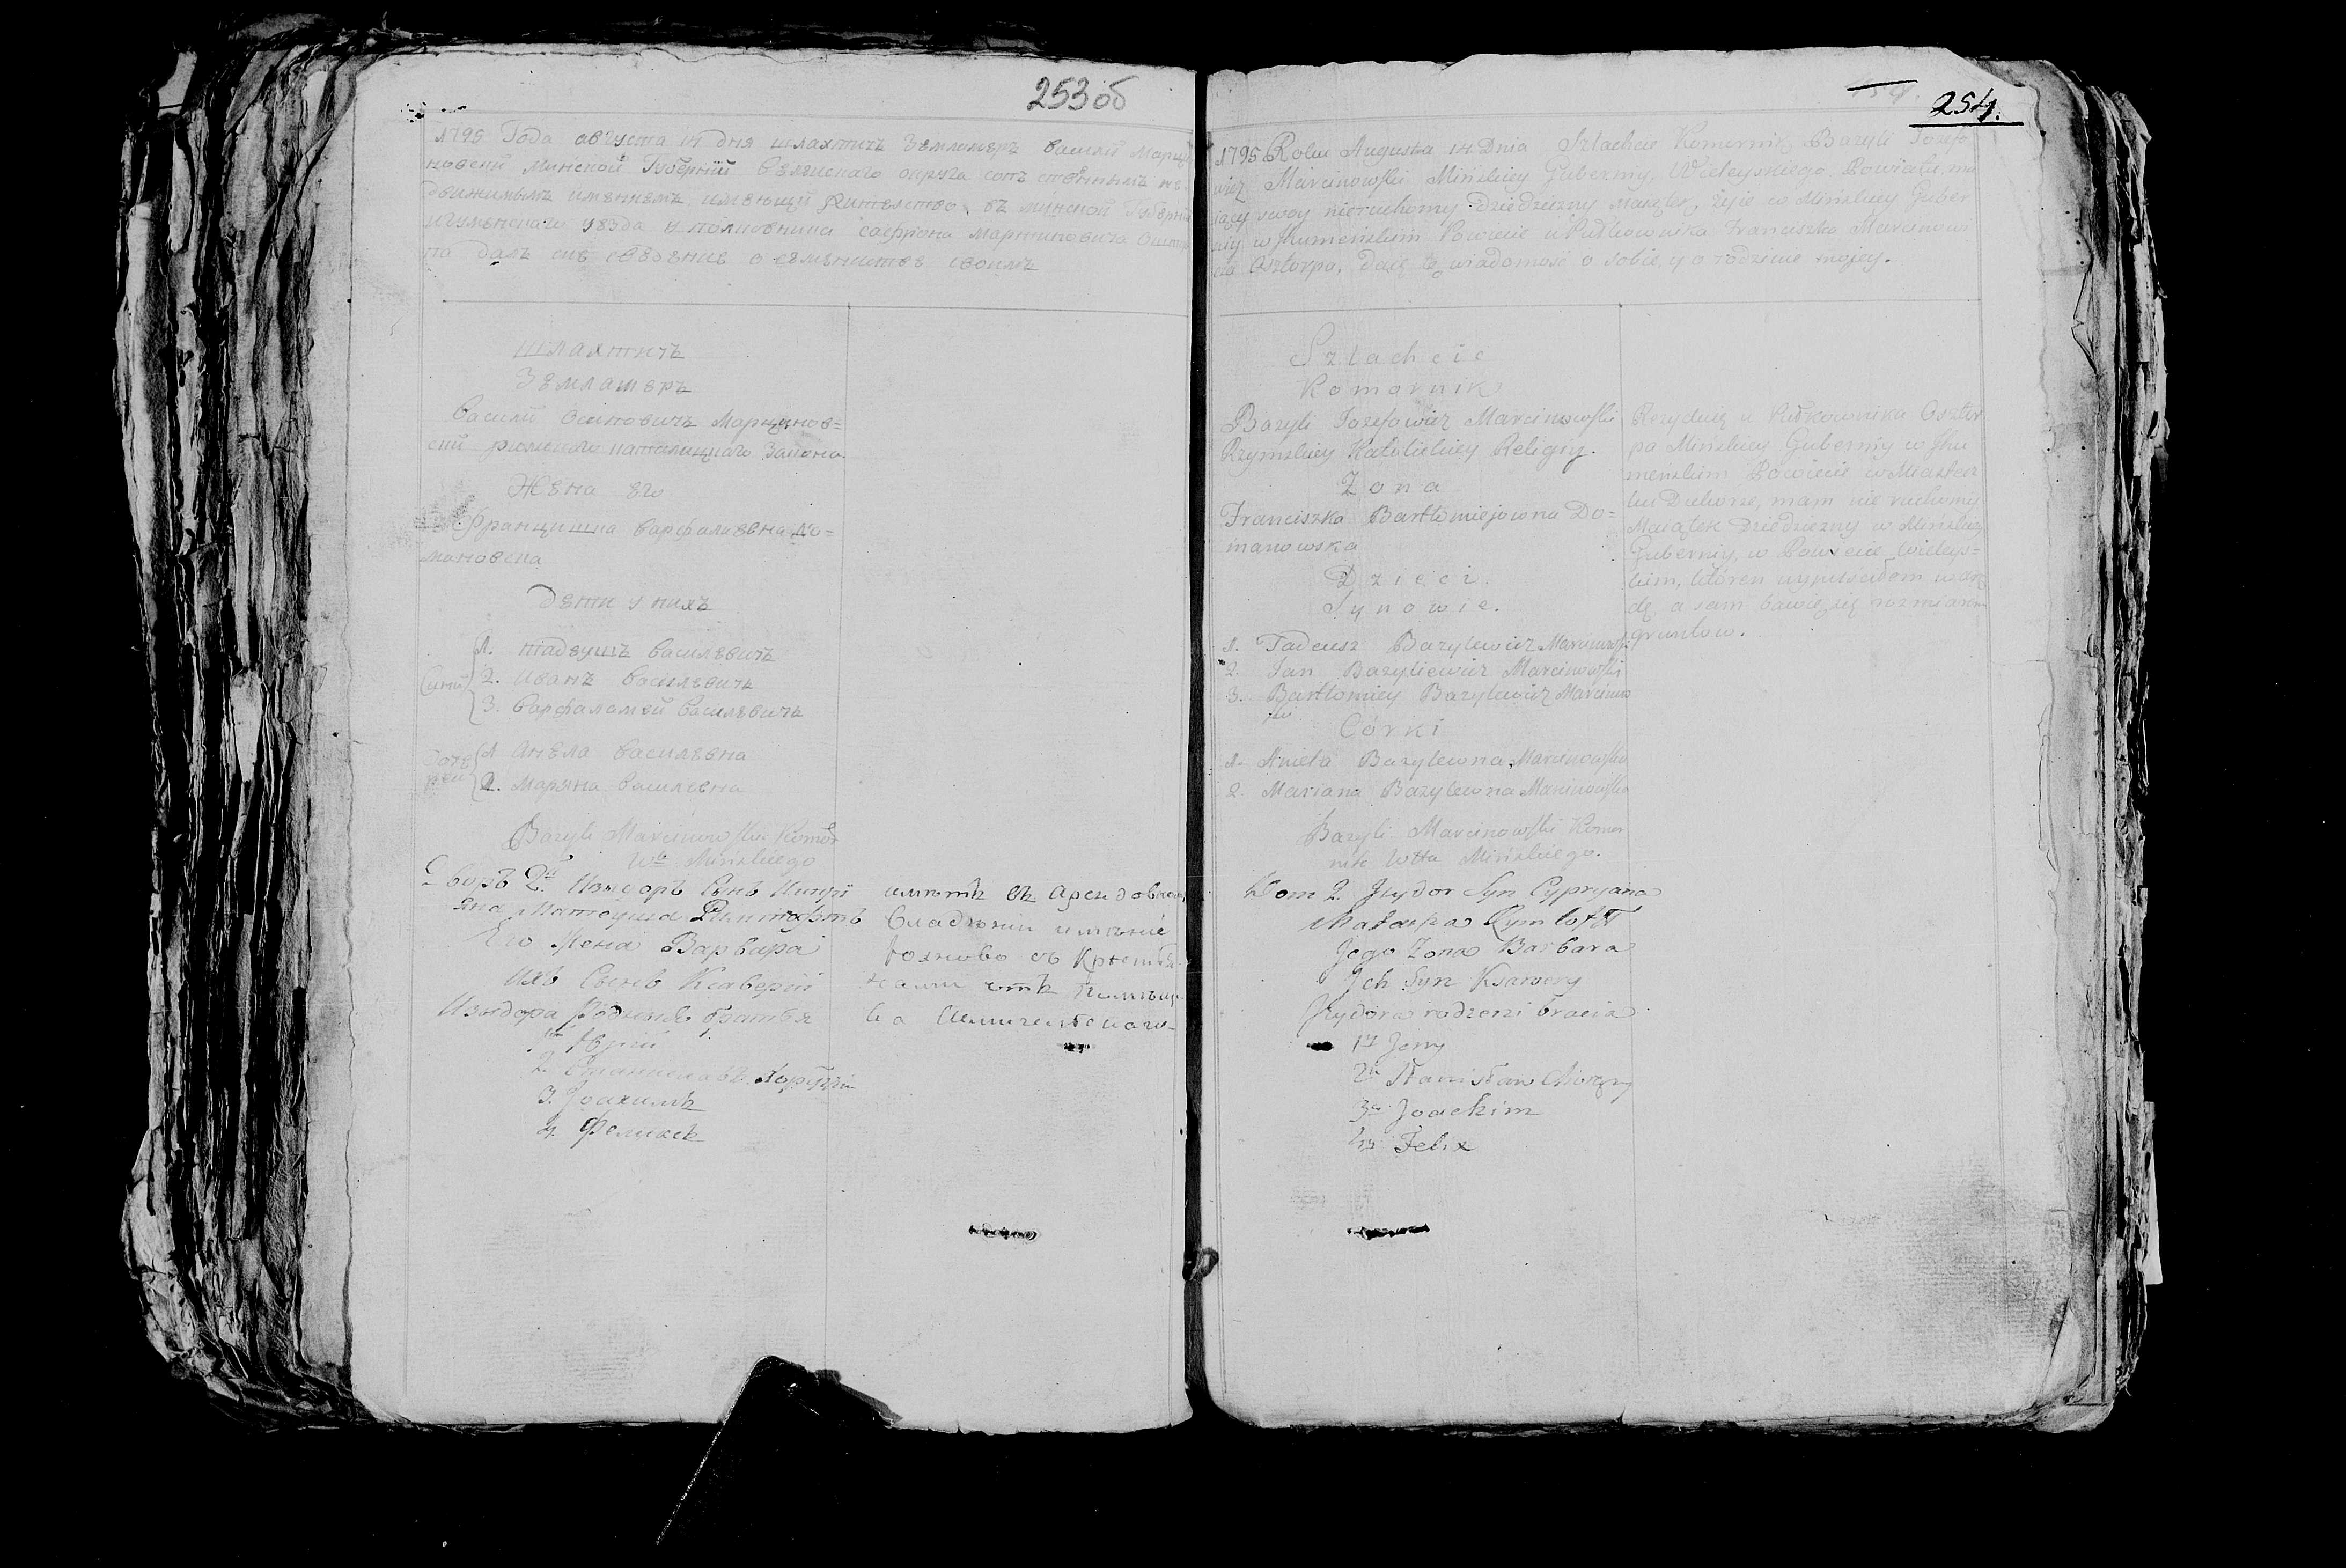 253 об
1795 Года августа 14 дня шляхтичъ Землемеръ Василий Марци
новский Минской Губернии Вѣлейскаго округа
движимымъ имѣниемъ имеющи жителство въ Минской Губернии
Игуменскаго уѣзда у полковника Мартиновича Оштор
па далъ сие о сѣмѣистве своимъ
шляхтичъ
Землемеръ
Василий Осиповичъ Марцинов=
ский римскаго каталицкаго Закона
Жена его
Францишка Варфалаевна До=
мановска
Дѣти у нихъ
1. Тадеушъ Василевичъ
2. Иванъ Василевичъ
3. Варфаламей Василевичъ
1 Анѣла Василевна
2. Маряна Василевна
Bazyli Marcinowski Komor
Wa Mińskiego
Дворъ 2й Изидоръ Сынъ Кипри
яна
Его Жена Варвара
Ихъ Сынъ Ксаверий
Изыдора Родныя братья
2. Станиславъ Хорунжий
3. Іоахимъ
4. Феликсъ
имѣетъ въ Арендовномъ
владѣнии имѣние
съ Крестья
нами отъ
254.
1795 Roku Augusta 14 Dnia Szlachcic Komornik Bazyli Jozefo
wicz Marcinowski Mińskiey Guberny, Wieleyskiego Powiatu, ma
iący swoy nieruchomy Dziedziczny maiątek, żyie w Mińskiey Guber
ny w Ihumeńskim Powiecie u Pułkownika Franciszka Marcinowi
cza Osztorpa, daię tę wiadomość o sobie, y o rodzinie mojey.
Szlachcic
Komornik
Bazyli Jozefowicz Marcinowski
Rzymskiey Katolickiey Religiy.
Żona
Franciszka Bartłomiejowna Do=
manowska
Dzieci.
Synowie.
1. Tadeusz Bazylewicz Marcinowski
2. Jan Bazyliewicz Marcinowski
3. Bartłomiey Bazylewicz Marcinow
ski
Córki
1. Aniela Bazylewna Marcinowska
2. Mariana Bazylewna Marcinowska
Bazyli Marcinowski Komor
nik Wtta Mińskiego.
Rezyduię u Pułkownika Osztor
pa Mińskiey Guberny w Ihu
meńskim Powiecie w Miastecz
ku Dukorze, mam nie ruchomy
Maiątek Dziedziczny w Mińskiey
Guberny, w Powiecie Wieleys=
kim, ktoren wypuściłem w arę
dę, a sam bawię się rozmiarem
gruntow.
Dom 2. Izydor Syn Cypryana
Jego Żona Barbara
Ich Syn Ksawery
Izydora rodzeni bracia
1y Jerzy
2i Stanisław Chorąży
3i Joachim
4y Felix